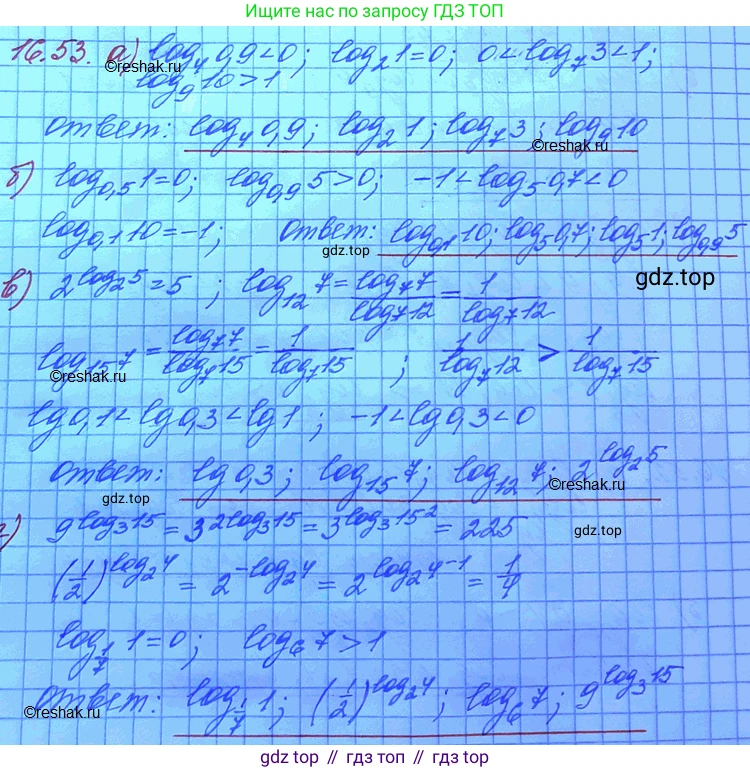 Ищите нас по запросу ГДЗ ТОП
16.53. а) log₄ 0,9 < 0; log₂ 1 = 0; 0 < log₇ 3 < 1;
©reshak.ru
log₉ 10 > 1
ответ: log₄ 0,9; log₂ 1; log₇ 3; log₉ 10
©reshak.ru
б) log₀,₅ 1 = 0; log₀,₉ 5 > 0; -1 < log₅ 0,7 < 0
log₀,₁ 10 = -1; ответ: log₀,₁ 10; log₅ 0,7; log₅ 1; log₀,₉ 5
gdz.top
в) 2^(log₂ 5) = 5; log₁₂ 7 = log₇ 7 / log₇ 12 = 1 / log₇ 12
gdz.top
log₁₅ 7 = log₇ 7 / log₇ 15 = 1 / log₇ 15; 1 / log₇ 12 > 1 / log₇ 15
©reshak.ru
lg 0,1 < lg 0,3 < lg 1; -1 < lg 0,3 < 0
ответ: lg 0,3; log₁₅ 7; log₁₂ 7; 2^(log₂ 5)
©reshak.ru
gdz.top
г) 9^(log₃ 15) = 3^(2log₃ 15) = 3^(log₃ 15²) = 225
gdz.top
(1/2)^(log₂ 4) = 2^(-log₂ 4) = 2^(log₂ 4⁻¹) = 1/4
log_(1/7) 1 = 0; log₆ 7 > 1
ответ: log_(1/7) 1; (1/2)^(log₂ 4); log₆ 7; 9^(log₃ 15)
©reshak.ru
gdz.top // гдз.топ // gdz.top